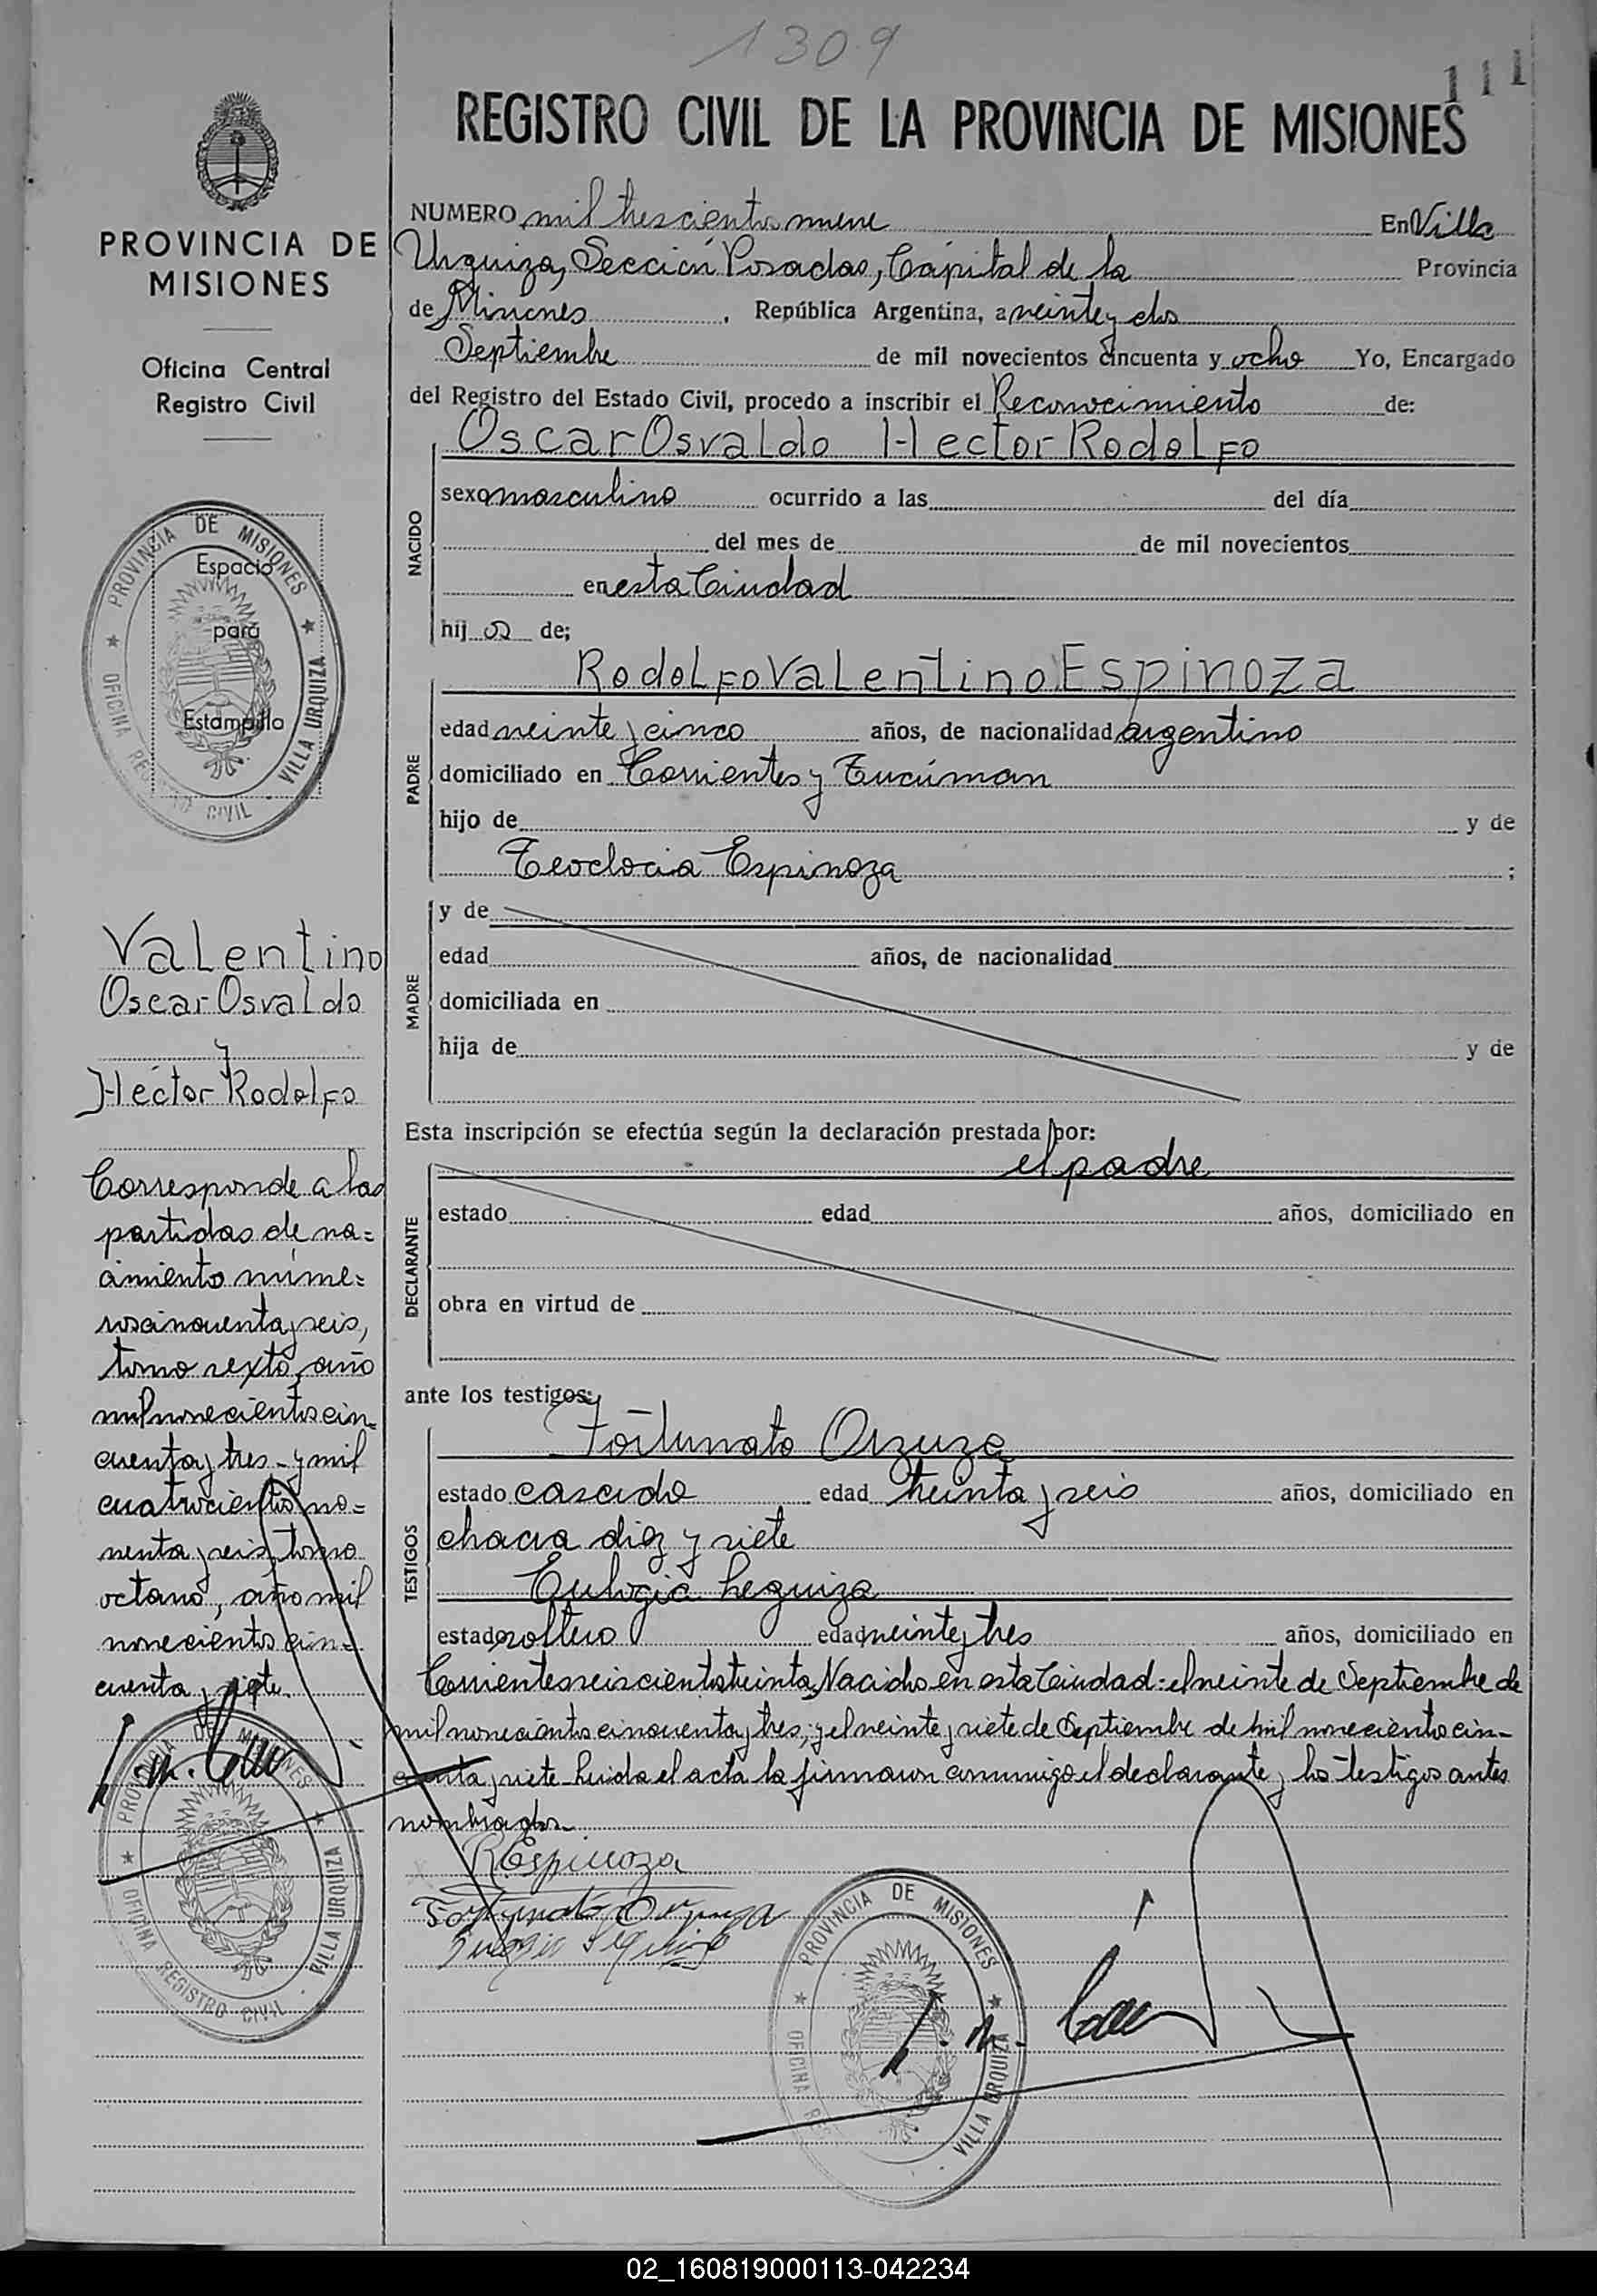 1309
111
REGISTRO CIVIL DE LA PROVINCIA DE MISIONES
PROVINCIA DE
MISIONES
Oficina Central
Registro Civil
PROVINCIA DE MISIONES
OFICINA REGISTRO CIVIL
VILLA URQUIZA
Espacio
para
Estampilla
Valentino
Oscar Osvaldo
y
Hector Rodolfo
Corresponde a las
partidas de na=
cimiento núme=
ros cincuenta y seis,
tomo sexto, año
mil novecientos cin-
cuenta y tres - y mil
cuatrocientos no=
venta y seis, tomo
octavo, año mil
novecientos cin-
cuenta y siete.
PROVINCIA DE MISIONES
OFICINA REGISTRO CIVIL
VILLA URQUIZA
NUMERO mil trescientos nueve En Villa
Urquiza, Sección Posadas, Capital de la Provincia
de Misiones, República Argentina, a veinte y dos
Septiembre de mil novecientos cincuenta y ocho Yo, Encargado
del Registro del Estado Civil, procedo a inscribir el Reconocimiento de:
Oscar Osvaldo Hector Rodolfo
NACIDO
sexo masculino ocurrido a las del día
del mes de de mil novecientos
en esta Ciudad
hij os de;
Rodolfo Valentino Espinoza
PADRE
edad veinte y cinco años, de nacionalidad argentino
domiciliado en Corrientes y Tucúman
hijo de y de
Teodocia Espinoza ;
MADRE
y de
edad años, de nacionalidad
domiciliada en
hija de y de
Esta inscripción se efectúa según la declaración prestada por:
el padre
DECLARANTE
estado edad años, domiciliado en
obra en virtud de
ante los testigos:
Fortunato Orzuza
TESTIGOS
estado casado edad treinta y seis años, domiciliado en
chacra diez y siete
Eulogia Leguiza
estado soltero edad veinte y tres años, domiciliado en
Corrientes seiscientos treinta. Nacidos en esta Ciudad: el veinte de Septiembre de
mil novecientos cincuenta y tres; y el veinte y siete de Septiembre de mil novecientos cin-
cuenta y siete. Leida el acta la firmaron conmigo el declarante y los testigos antes
nombrados.
R Espinoza
Fortunato Orzuza
PROVINCIA DE MISIONES
OFICINA
VILLA URQUIZA
02_160819000113-042234